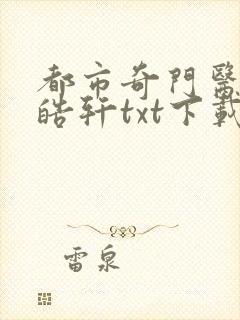 都市奇門醫
皓軒txt下載
雷泉